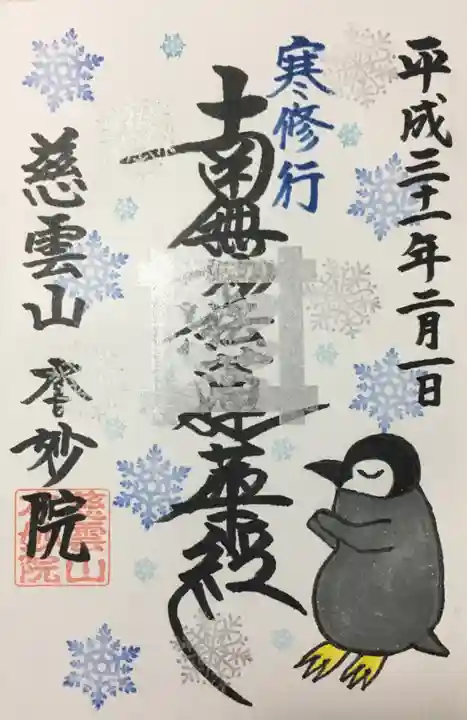 平成三十一年二月一日
寒修行
南無妙法蓮華経
慈雲山 本妙院
慈雲山
本妙院